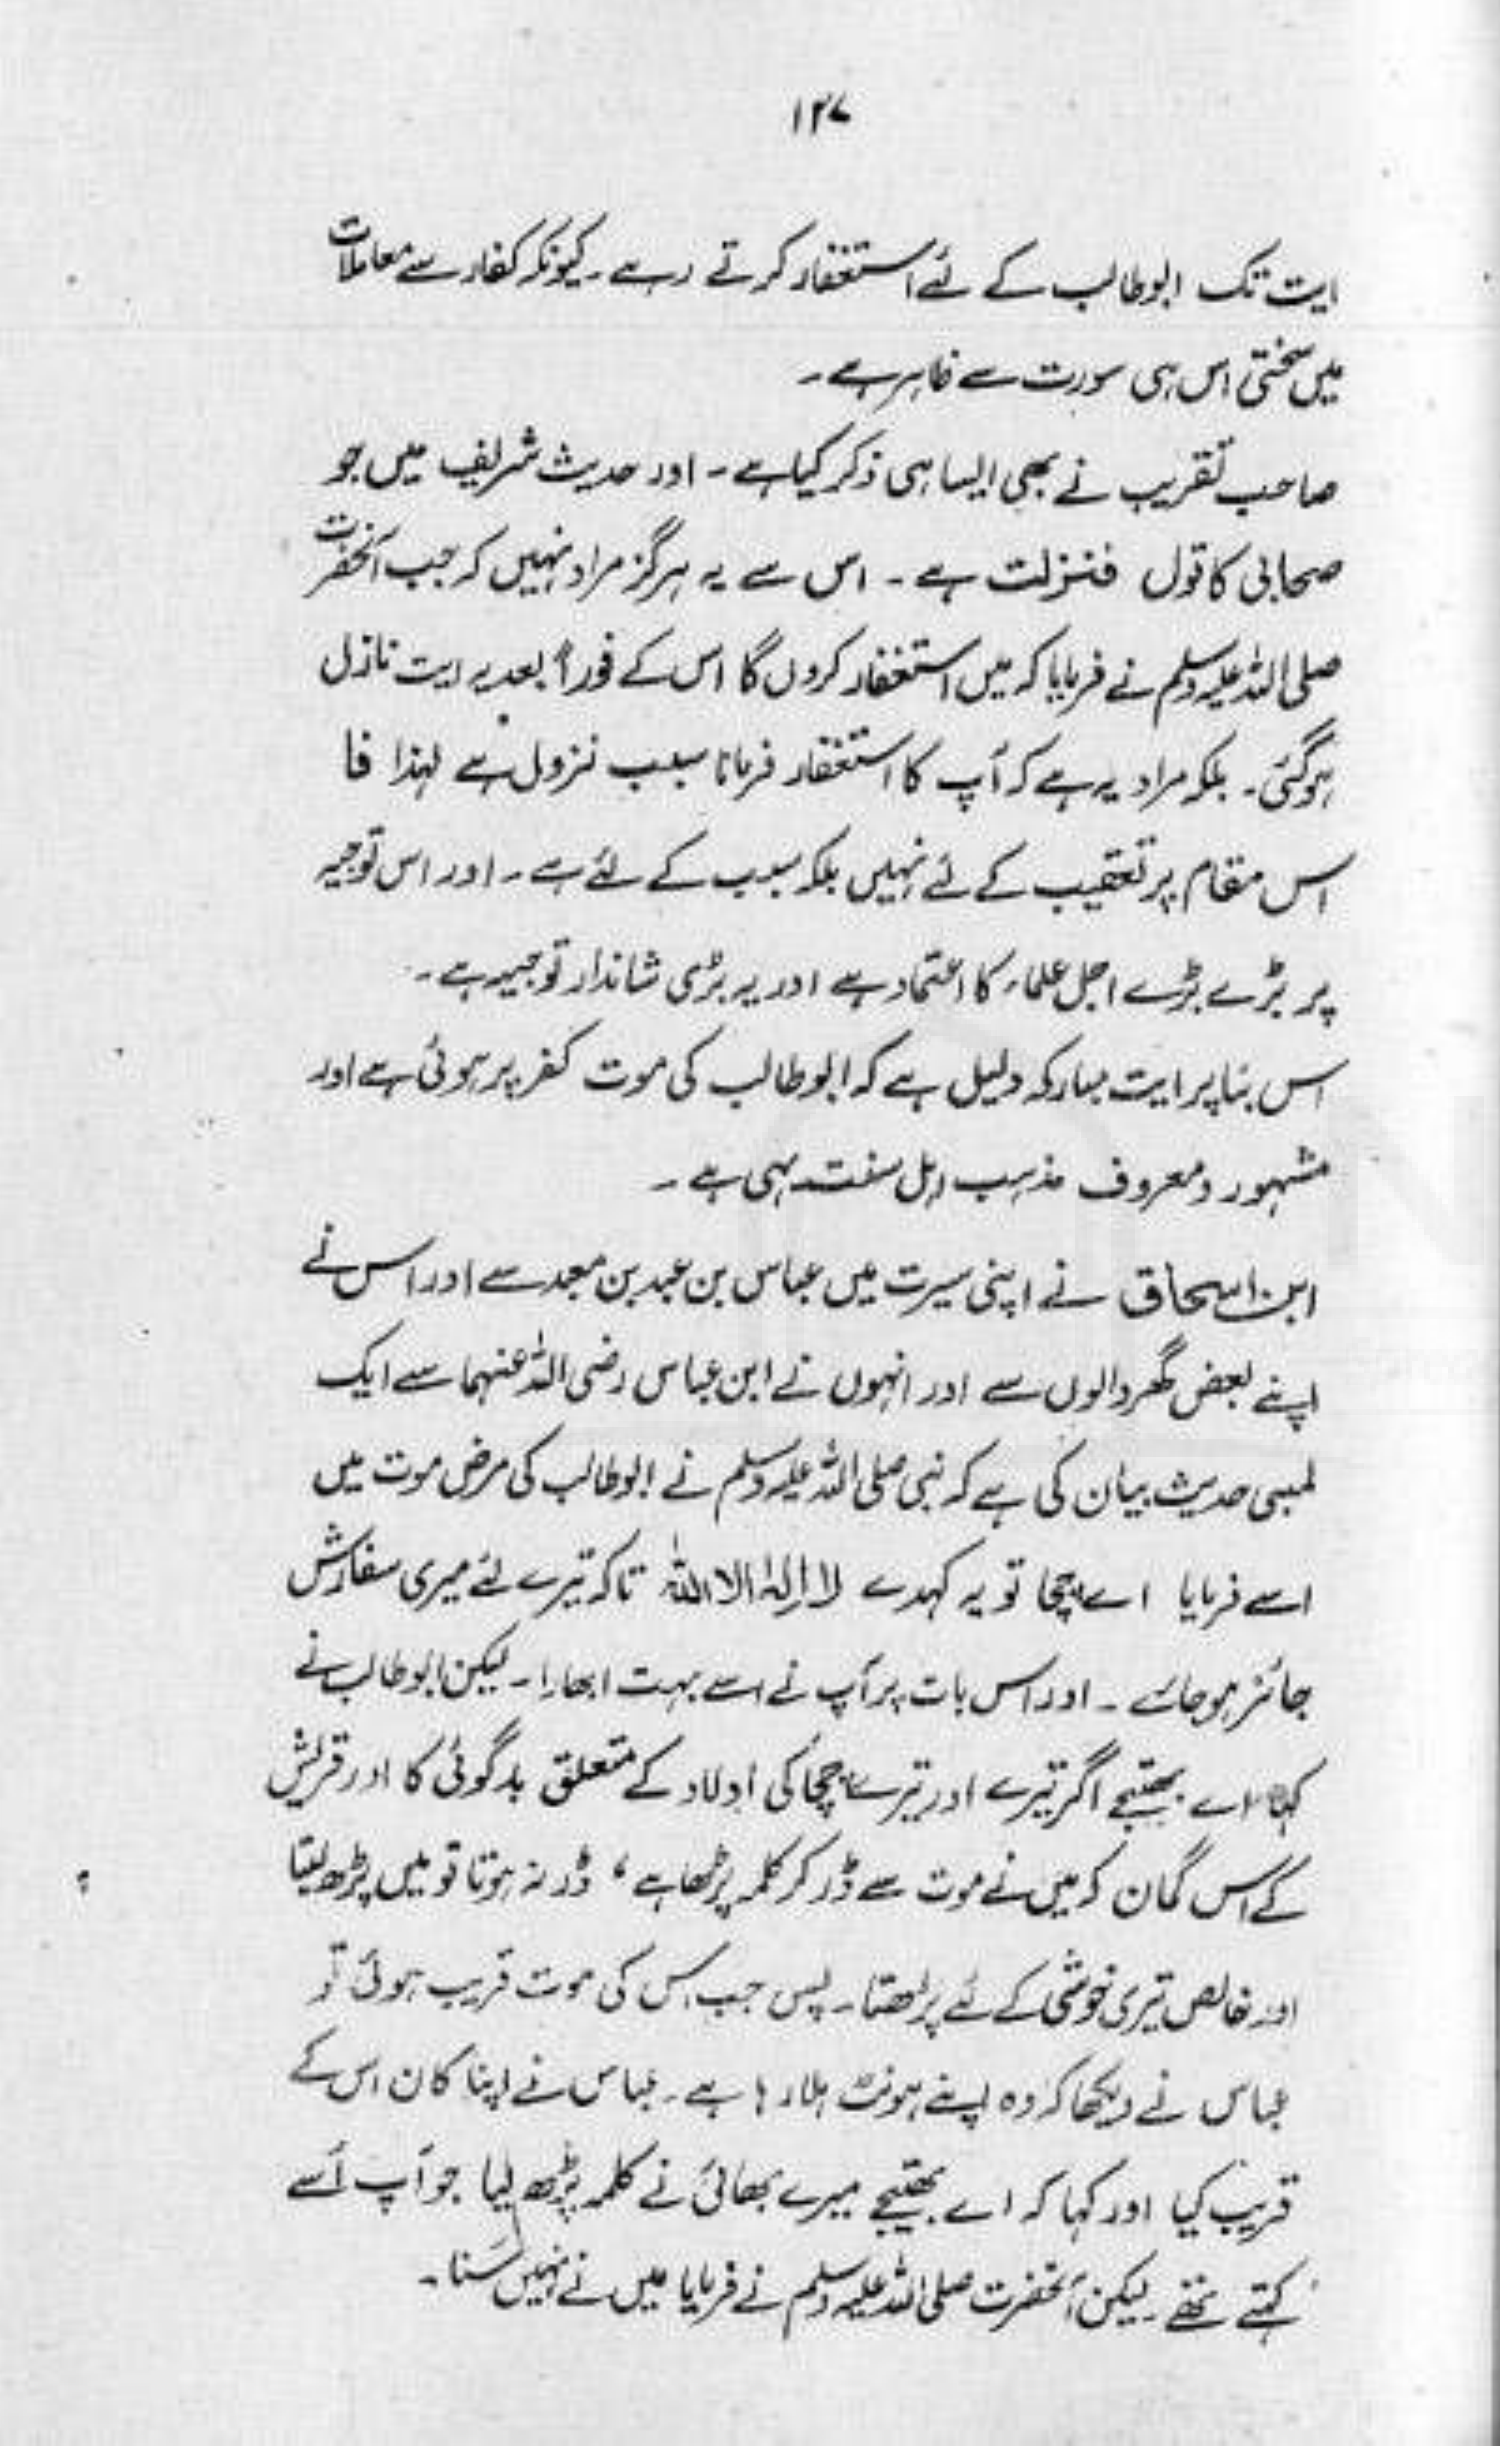 ۱۲۷
ایت تک ابوطالب کے لئے استغفار کرتے رہے ۔ کیونکہ کفار سے معاملات
میں سختی اس ہی سورت سے ظاہر ہے ۔
صاحب تقریب نے بھی ایسا ہی ذکر کیا ہے ۔ اور حدیث شریف میں جو
صحابی کا قول فنزلت ہے ۔ اس سے یہ ہرگز مراد نہیں کہ جب آنحضرت
صلی اللہ علیہ وسلم نے فرمایا کہ میں استغفار کروں گا اس کے فوراً بعد یہ ایت نازل
ہوگئی ۔ بلکہ مراد یہ ہے کہ آپ کا استغفار فرمانا سبب نزول ہے لہذا فا
اس مقام پر تعقیب کے لئے نہیں بلکہ سبب کے لئے ہے ۔ اور اس توجیہ
پر بڑے بڑے اجل علماء کا اعتماد ہے اور یہ بڑی شاندار توجیہ ہے ۔
اس بنا پر ایت مبارکہ دلیل ہے کہ ابوطالب کی موت کفر پر ہوئی ہے اور
مشہور و معروف مذہب اہل سنت یہی ہے ۔
ابن اسحاق نے اپنی سیرت میں عباس بن عبد بن معبد سے اور اس نے
اپنے بعض گھر والوں سے اور انہوں نے ابن عباس رضی اللہ عنہما سے ایک
لمبی حدیث بیان کی ہے کہ نبی صلی اللہ علیہ وسلم نے ابوطالب کی مرض موت میں
اسے فرمایا اے چچا تو یہ کہدے لا الہ الا اللہ تاکہ تیرے لئے میری سفارش
جائز ہو جائے ۔ اور اس بات پر آپ نے اسے بہت ابھارا ۔ لیکن ابوطالب نے
کہا اے بھتیجے اگر تیرے اور تیرے چچا کی اولاد کے متعلق بدگوئی کا اور قریش
کے اس گمان کہ میں نے موت سے ڈر کر کلمہ پڑھا ہے ، ڈر نہ ہوتا تو میں پڑھ لیتا
اور خالص تیری خوشی کے لئے پڑھتا ۔ پس جب اس کی موت قریب ہوئی تو
عباس نے دیکھا کہ وہ اپنے ہونٹ ہلا رہا ہے ۔ عباس نے اپنا کان اس کے
قریب کیا اور کہا کہ اے بھتیجے میرے بھائی نے کلمہ پڑھ لیا جو آپ اُسے
کہتے تھے ۔ لیکن آنحضرت صلی اللہ علیہ وسلم نے فرمایا میں نے نہیں سُنا ۔